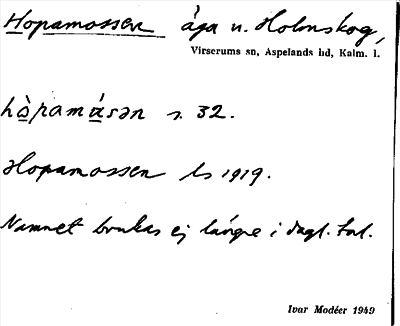 Hopamossen äga u. Holmskog,
Virserums sn, Aspelands hd, Kalm. l.
hòpamásən s. 32.
Hopamossen ls 1919.
Namnet brukas ej längre i dagl. tal.
Ivar Modéer 1949